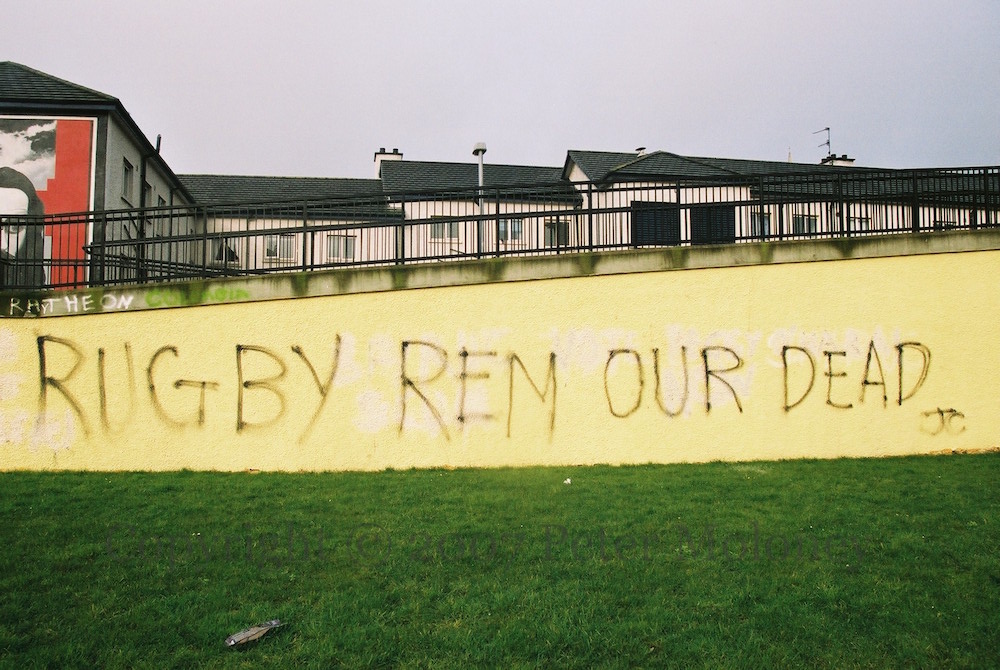 RAYTHEON
RUGBY REM OUR DEAD
JC
Copyright © 2007 Peter Moloney